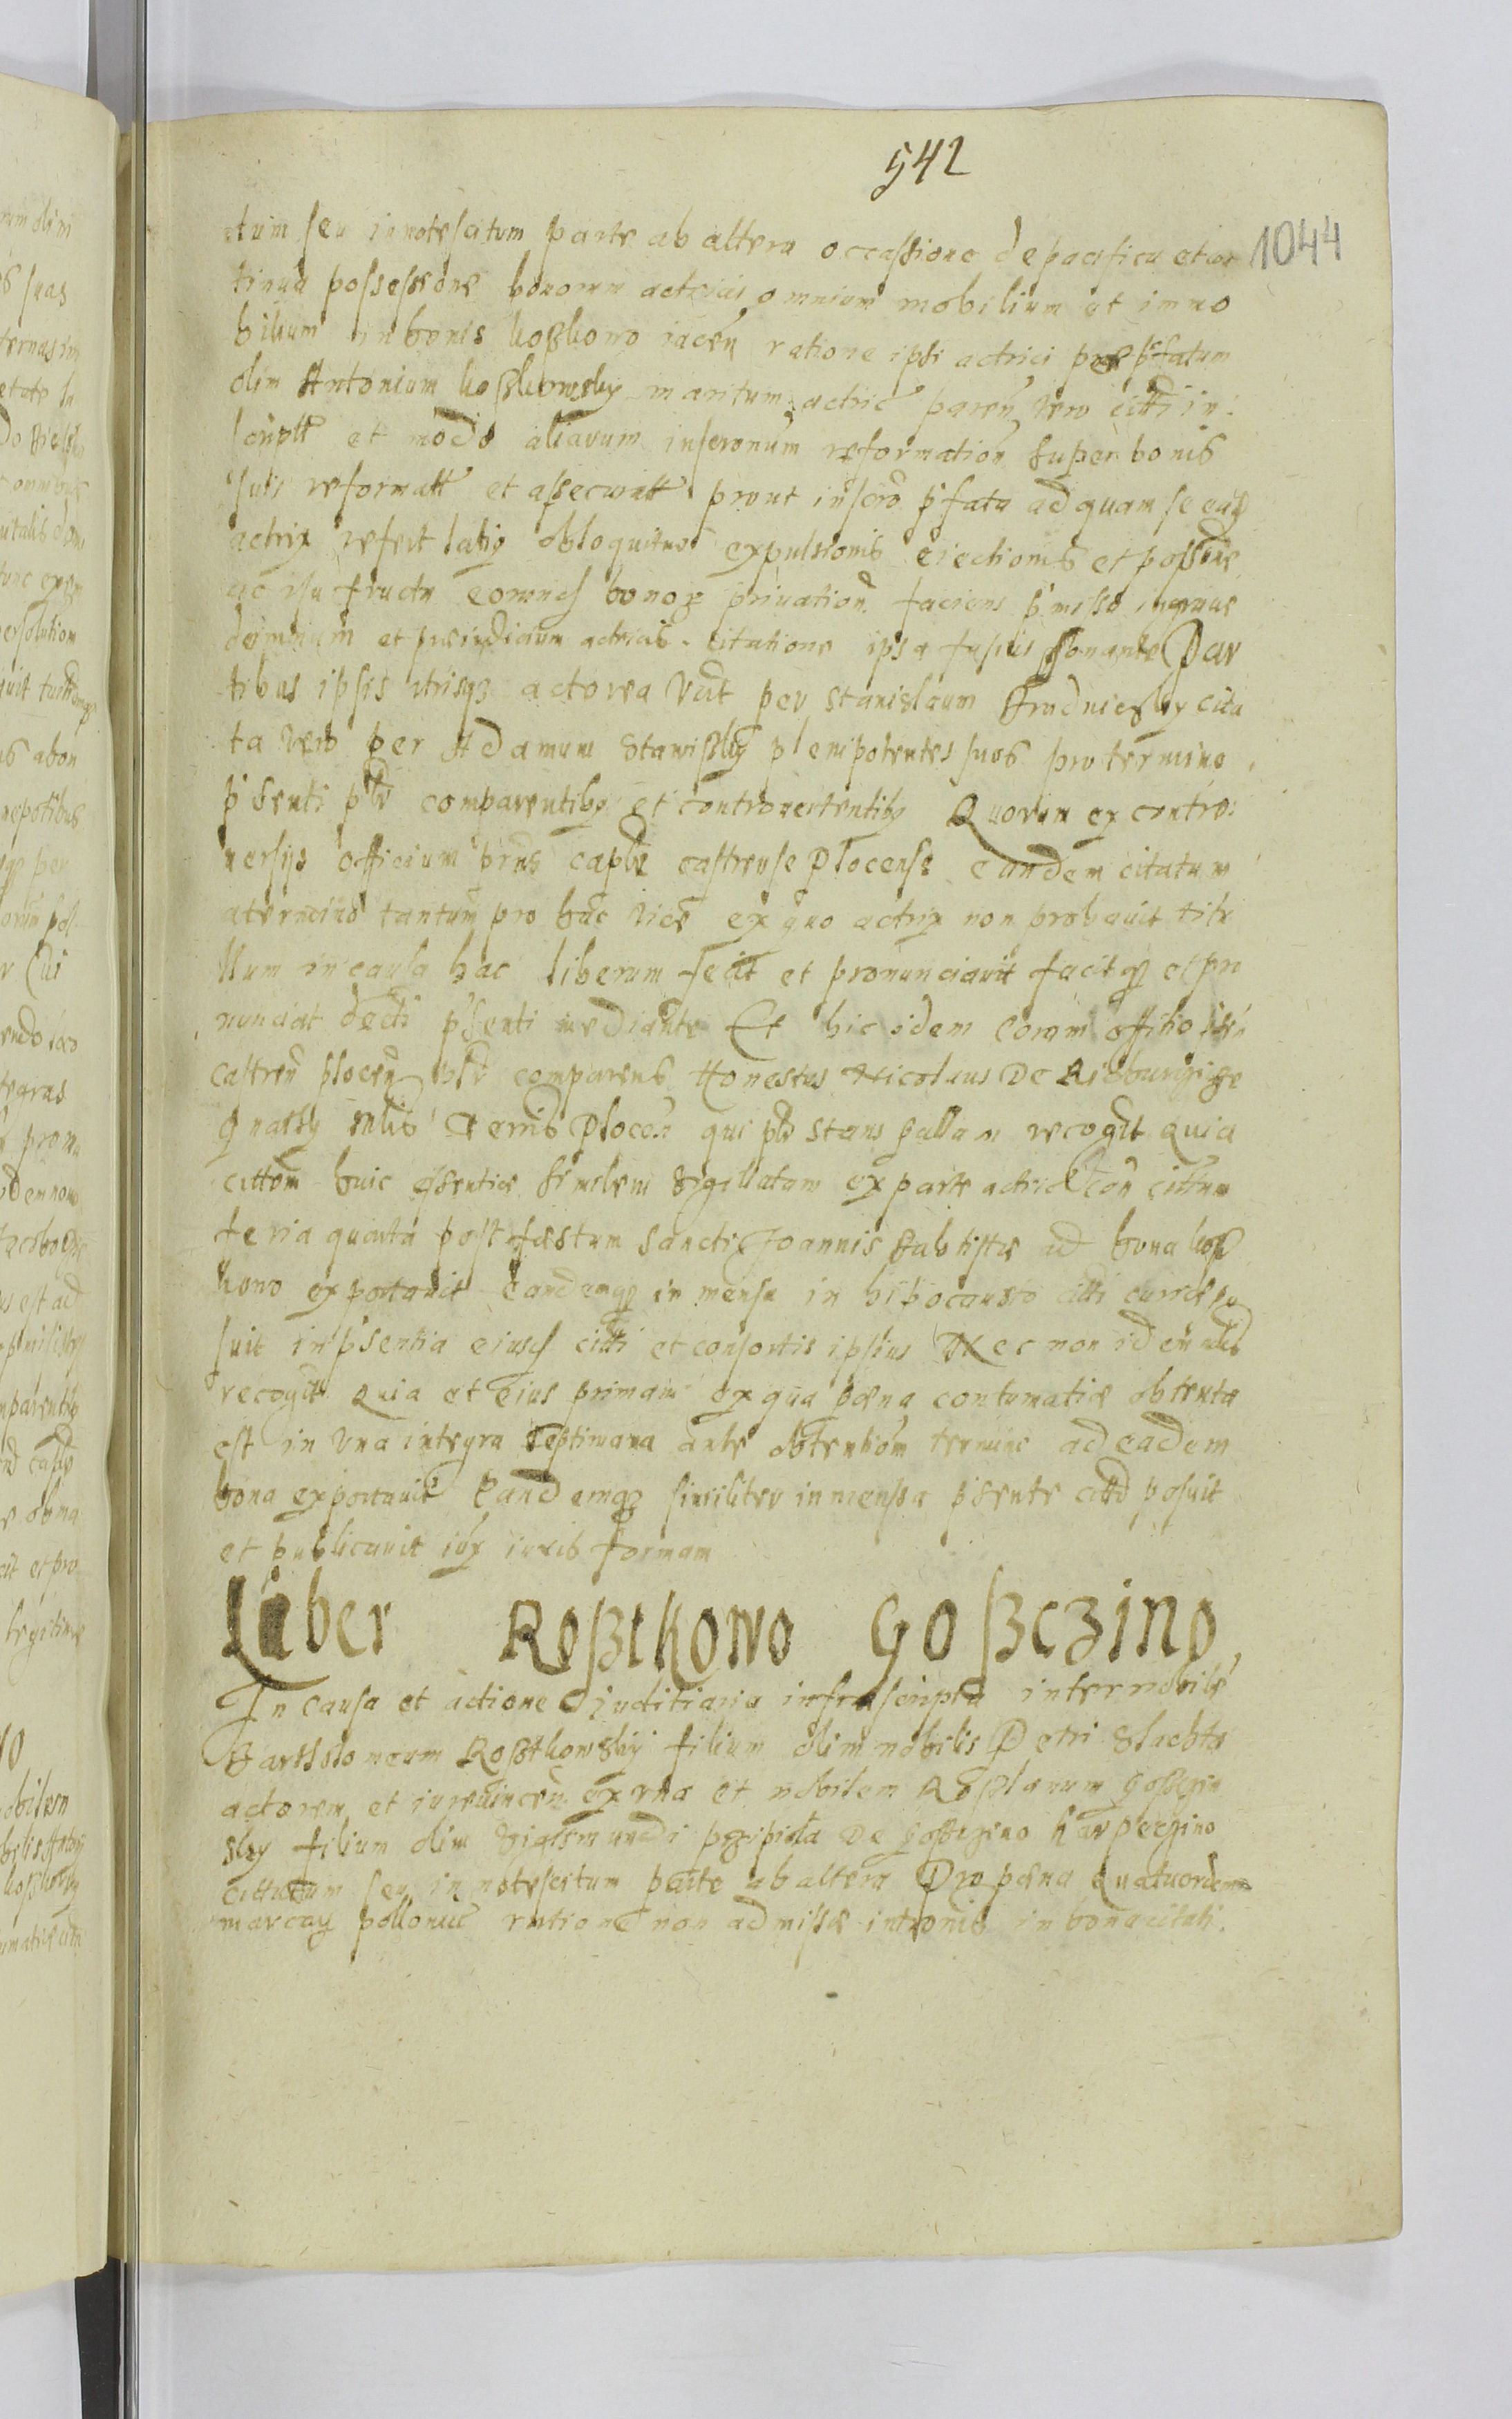 542
1044
tum seu innotescitum parte ab altera occassione de pacifica et con
tinua possessione bonorum actricis omnium mobilium et immo
bilium in bonis Koßkowo iacen ratione ipsi actrici per pfatum
olim Antonium Koßkowsky maritum actric paren vero citti in
scriptt et modo aliarum inscronum reformation super bonis
suis reformatt et assecuratt prout inscro pfata ad quam se ead
actrix refert latig obloquitur expulsionis eiectionis et possione
ac usu fructu eorund bonor privation faciens pmisso
damnum et preiudicium actricis citatione ipsa fusius sonante Par
tibus ipsis utrisq actorea videlt per Stanislaum Brudnicky cita
ta vero per Adamum Stanisky plenipotentes suos pro termino
psenti plr comparentibg et controvertentibg Quorum ex contro
versijs officium prns captle castrense Plocense eandem citatum
a termino tantum pro hac vice ex quo actrix non probavit titu
llum in causa hac liberum fecit et pronunciavit facit q et pro
nunciat decti psenti mediante Et hic idem coram offitio
castren plocen plr comparens Honestus Nicolaus De
gnathy mlis Terris Plocen qui plr stans pallam recogt quia
cittom huic psentice similem sigillatam ex parte actric con cittum
feria quarta post festum sancti Joannis Babtiste ad bona Koß
kowo exportavit eandemq in mensa in hipocausto citti curiae po
suit in psentia eiusd citti et consortis ipsius Nec non idem mlis
recogt quia et eius primam ex qua pena contumatice obtenta
est in una integra septimana ante obtention termini ad eadem
bona exportavit Eandemq similiter in mensa psente citto posuit
et publicavit iux iuris formam
Liber Roßtkowo Goßczino
In causa et actione iuditiaria infrascripta inter nobile
Barthlomeum Roßtkowsky filium olim nobilis Petri Slachta
actorem et iurevincen ex una et nobilem Roslanum Goßczin
sky filium olim Sigismundi przipiota De Goßczino Karpeczino
cittatum seu innotescitum parte ab altera Pro pena quatuordecim
marcar pollonic ratione non admisse intronis in bona citati